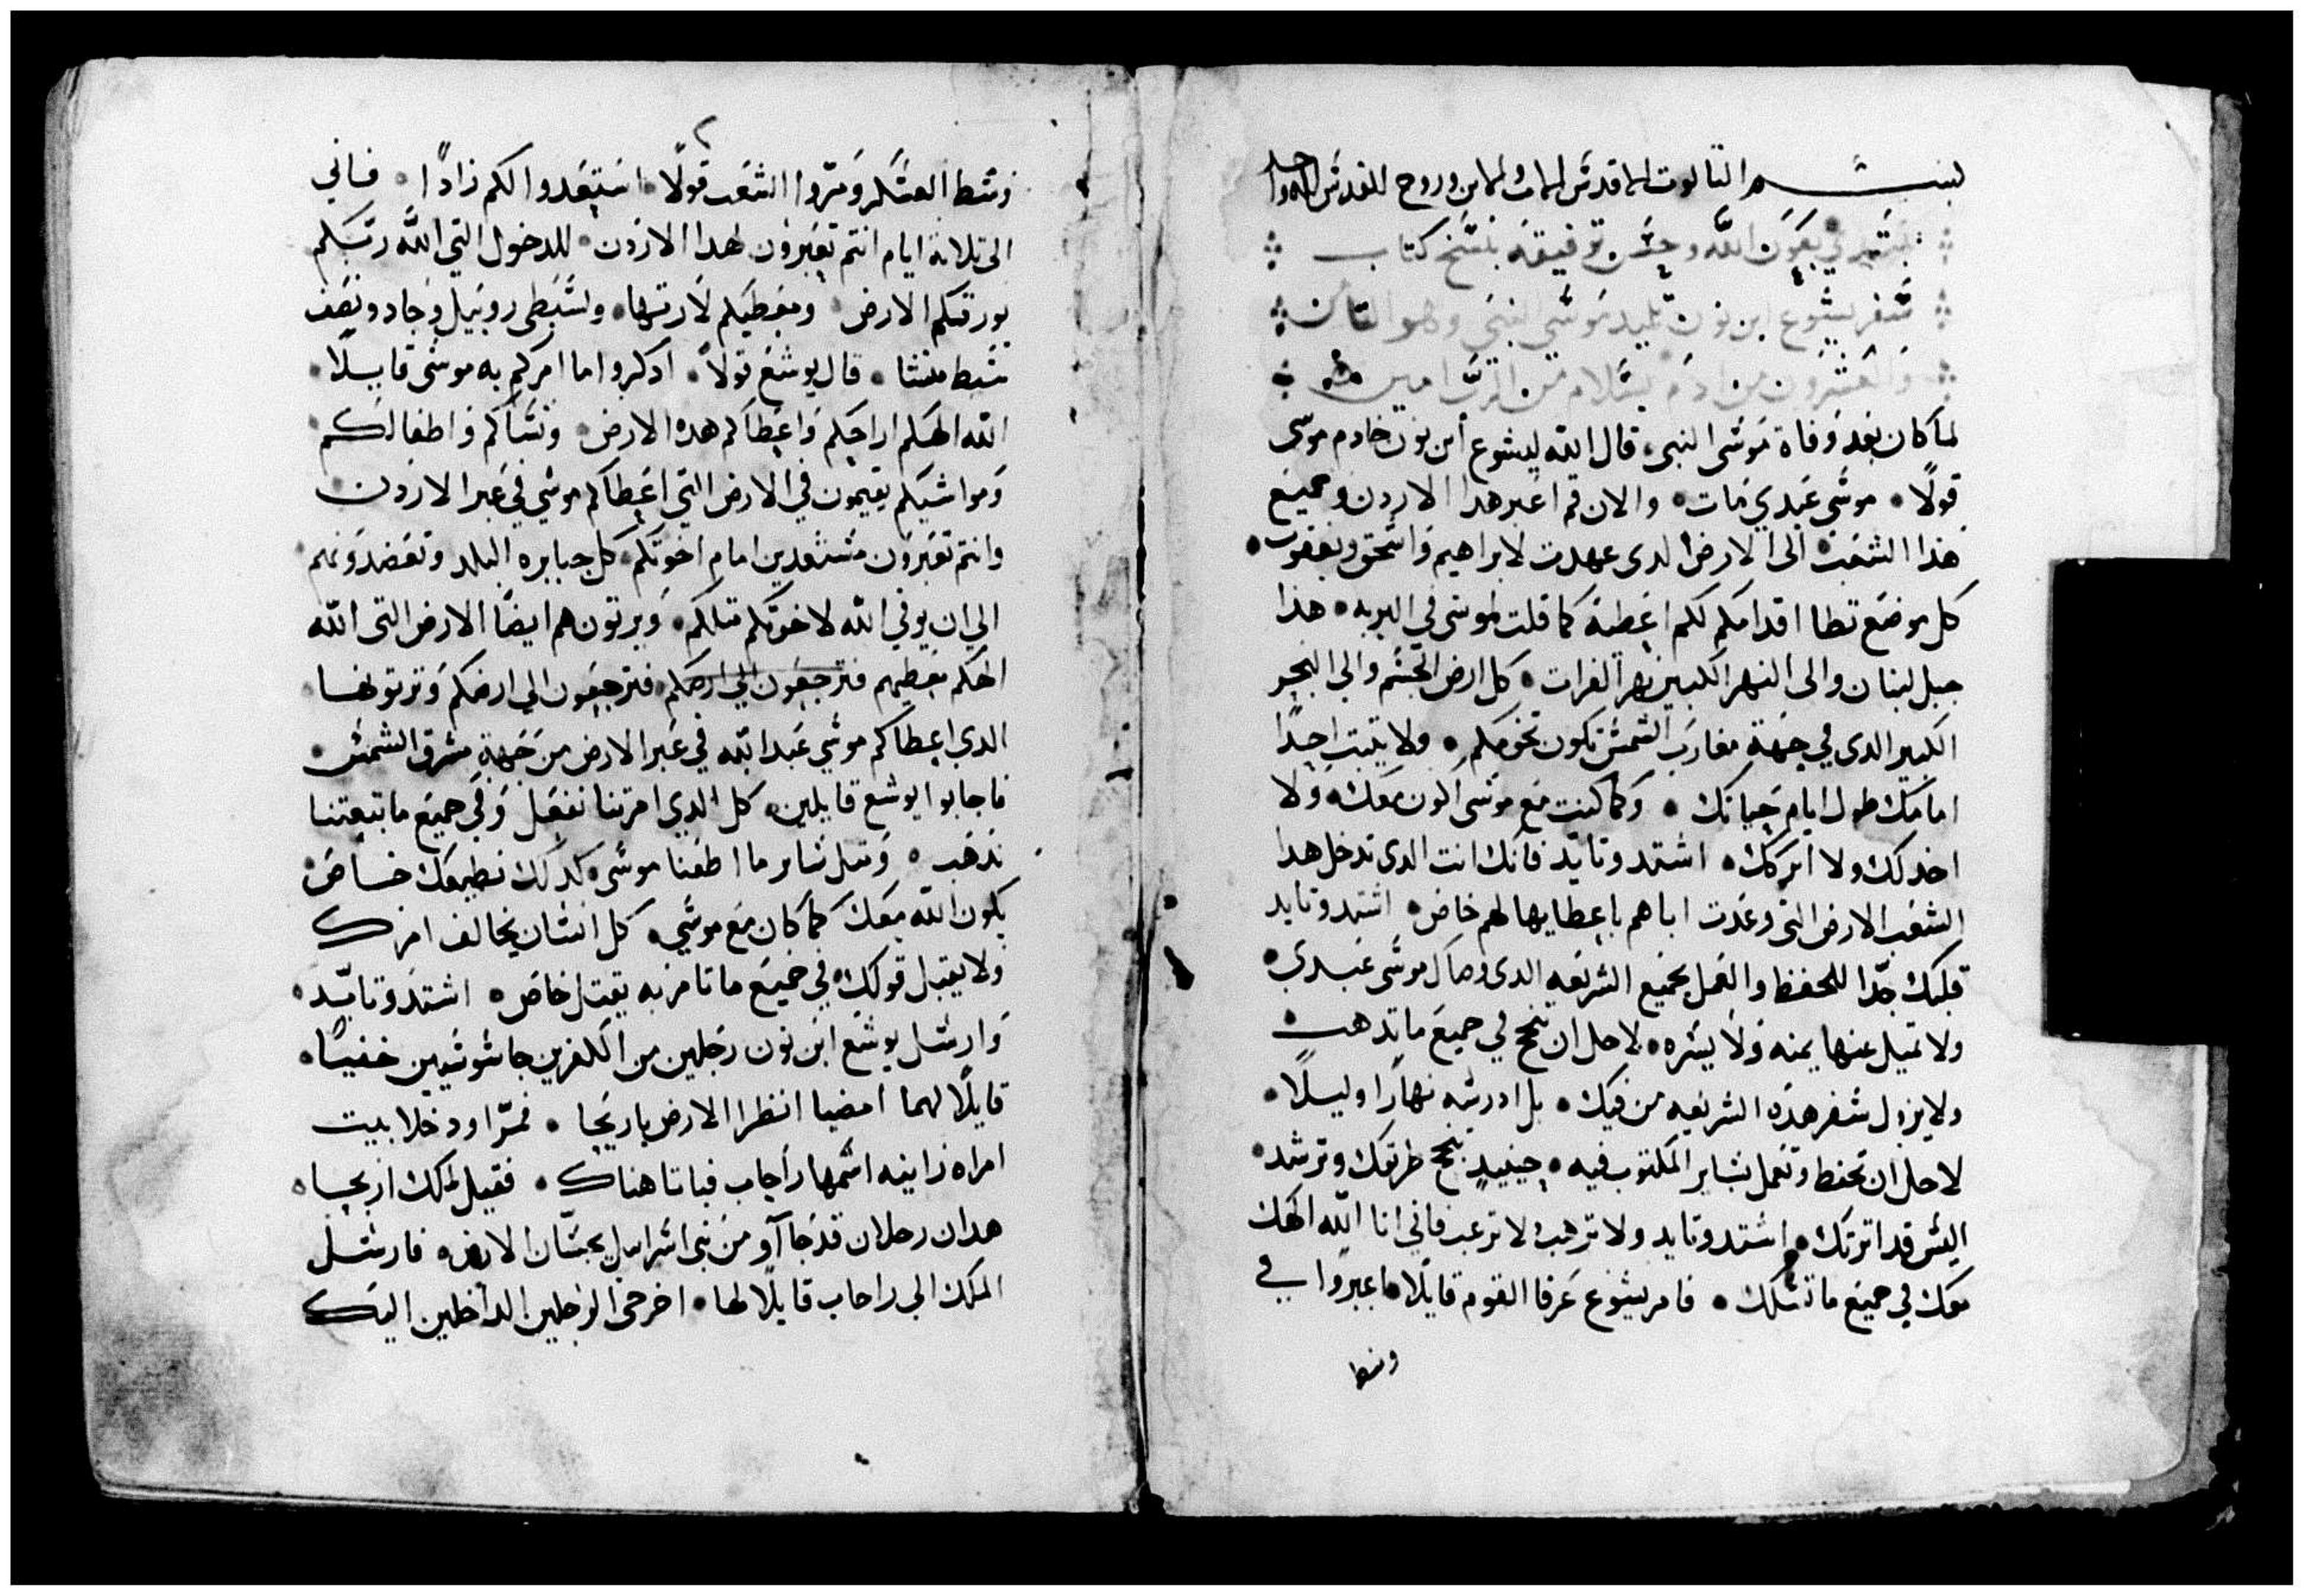 بسم التالوت الاقدس الاب والابن وروح القدس اله واحد
نبتدي بعون الله وحسن توفيقه بنسخ كتاب
سفر يشوع ابن نون تلميد موسي النبي وهو التامن
والعشرون من ادم بسلام من الرب امين
لما كان بعد وفاة موسى النبي قال الله ليشوع أبن نون خادم موسى
قولًا موسى عبدي مات والان قم اعبر هدا الاردن وجميع
هذا الشعب الى الارض الدى عهدت لابراهيم واسحق ويعقوب
كل موضع تطا اقدامكم لكم اعطية كما قلت لموسى في البريه هذا
جبل لبنان والى النهر الكبير نهر الفرات كل ارض الحشم والي البحر
الكبير الدى في جهة مغارب الشمس تكون تخومكم ولا يتبت احدًا
امامك طول ايام حياتك وكما كنت مع موسى اكون معك ولا
اخدلك ولا اتركك اشتد وتايد فأنك انت الدى تدخل هدا
الشعب الارض التي وعدت اباهم باعطايها لهم خاص اشتد وتايد
قلبك جدّا للحفظ والعمل بجميع الشريعه الدى وصاك موسى عبدي
ولا تميل عنها يمنه ولا يسره لاجل ان تنجح في جميع ما تدهب
ولا يزول سفر هذه الشريعه من فيك بل ادرسه نهارًا وليلًا
لاجل ان تحفط وتعمل بساير المكتوب فيه حينيدٍ تنجح طرقك وترشد
اليس قد امرتك اشتد وتايد ولا ترهب ولا ترعب فاني انا الله الهك
معك في جميع ما تسلك فامر يشوع عرفا القوم قايلًا اعبروا في
وسط
وسط العسكر ومروا الشعب قولًا استعدوا لكم زادًا فاني
الى تلاتة ايام انتم تعبرون هدا الاردن للدخول التي الله ربكم
يورتكم الارض ومعطيكم لارتها ولسبطى روبيل وجاد ونصف
سبط منشا قال يوشع قولاً ادكروا ما امركم به موسى قايلًا
الله الهكم اراحكم واعطاكم هده الارض ونساكم واطفالكم
ومواشيكم يقيمون في الارض التي اعطاكم موسي في عبر الاردن
وانتم تعبرون مستعدين امام اخوتكم كل جبابره البلد وتعضدونهم
الي ان يوفي الله لاخوتكم متلكم ويرتون هم ايضًا الارض التى الله
الهكم معطيهم فترجعون الي ارضكم فترجعون الي ارضكم وترتونها
الدي اعطاكم موسي عبد الله في عبر الارض من جهة مشرق الشمس
فاجابوا يوشع قايلين كل الدي امرتنا نفعل وفي جميع ما تبعتنا
نذهب ومتل ساير ما اطعنا موسى كدلك نطيعك خاص
يكون الله معك كما كان مع موسي كل انسان يخالف امرك
ولا يقبل قولك في جميع ما تامر به يقتل خاص اشتد وتايّد
وارسل يوشع ابن نون رجلين من الكفرين جاسوسين خفيًا
قايلًا لهما امضيا انظرا الارض ياريحا فمرّا ودخلا بيت
امراه زانيه اسمها راجاب فباتا هناك فقيل لملك اريحا
هدان رجلان قد جاآو من بني اسراييل بجسّان الارض فارسل
الملك الي راحاب قايلًا لها اخرجى الرجلين الداخلين اليك